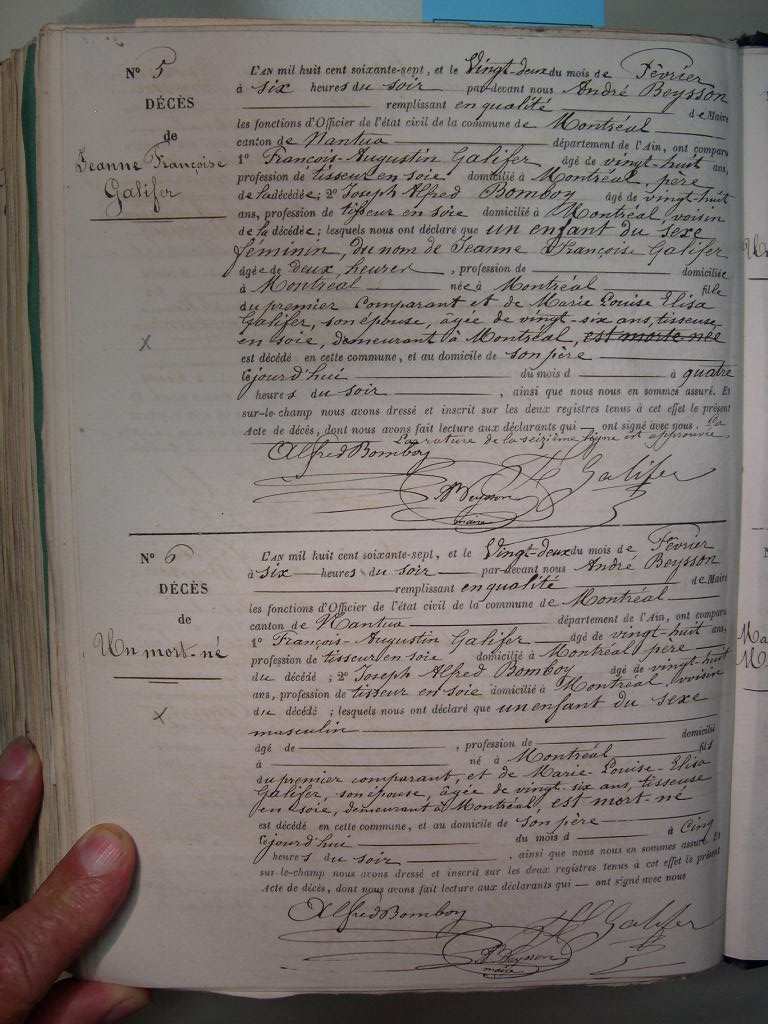 N° 5
DÉCÈS
de
Jeanne Françoise
Galifer
L'AN mil huit cent soixante-sept, et le Vingt-deux du mois de Février
à six heures du soir par-devant nous André Beysson
remplissant en qualité de Maire
les fonctions d'Officier de l'état civil de la commune de Montréal
canton de Nantua département de l'Ain, ont comparu
1° François-Augustin Galifer âgé de vingt-huit ans,
profession de tisseur en soie domicilié à Montréal, père
de la décédée; 2° Joseph Alfred Bomboy âgé de vingt-huit
ans, profession de tisseur en soie domicilié à Montréal, voisin
de la décédée; lesquels nous ont déclaré que un enfant du sexe
féminin, du nom de Jeanne Françoise Galifer
âgée de deux heures, profession de domiciliée
à Montréal née à Montréal fille
du premier comparant et de Marie Louise Elisa
Galifer, son épouse, âgée de vingt-six ans, tisseuse
en soie, demeurant à Montréal, est morte née
est décédé en cette commune, et au domicile de son père
lejourd'hui du mois d à quatre
heures du soir, ainsi que nous nous en sommes assuré. Et
sur-le-champ nous avons dressé et inscrit sur les deux registres tenus à cet effet le présent
Acte de décès, dont nous avons fait lecture aux déclarants qui — ont signé avec nous. La
rature de la seizième ligne est approuvée.
Alfred Bomboy
Galifer
Beysson
maire
N° 6
DÉCÈS
de
Un mort-né
L'AN mil huit cent soixante-sept, et le Vingt-deux du mois de Février
à six heures du soir par-devant nous André Beysson
remplissant en qualité de Maire
les fonctions d'Officier de l'état civil de la commune de Montréal
canton de Nantua département de l'Ain, ont comparu
1° François-Augustin Galifer âgé de vingt-huit ans,
profession de tisseur en soie domicilié à Montréal père
du décédé; 2° Joseph Alfred Bomboy âgé de vingt-huit
ans, profession de tisseur en soie domicilié à Montréal, voisin
du décédé; lesquels nous ont déclaré que un enfant du sexe
masculin
âgé de, profession de domicilié
à né à Montréal fils
du premier comparant, et de Marie-Louise-Elisa
Galifer, son épouse, âgée de vingt-six ans, tisseuse
en soie, demeurant à Montréal, est mort-né
est décédé en cette commune, et au domicile de son père
lejourd'hui du mois d à Cinq
heures du soir, ainsi que nous nous en sommes assuré. Et
sur-le-champ nous avons dressé et inscrit sur les deux registres tenus à cet effet le présent
Acte de décès, dont nous avons fait lecture aux déclarants qui — ont signé avec nous
Alfred Bomboy
Galifer
Beysson
maire